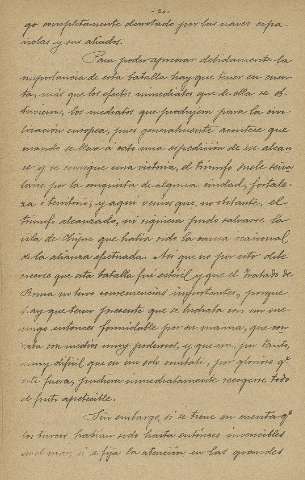 - 20 -
go completamente derrotado por las naves espa-
ñolas y sus aliados.
Para poder apreciar debidamente la
importancia de esta batalla hay que tener en cuen-
ta, más que los efectos inmediatos que de ella se ob-
tuvieron, los mediatos que produjeron para la civi-
lización europea, pues generalmente acontece que
cuando se lleva á cabo una expedición de ese alcan-
ce y se consigue una victoria, el triunfo suele tradu-
cirse por la conquista de alguna ciudad, fortale-
za ó territorio; y aquí vemos que, no obstante, el
triunfo alcanzado, ni siquiera pudo salvarse la
isla de Chipre que había sido la causa ocasional
de la alianza efectuada. No que no por esto debe
creerse que esta batalla fué estéril, y que el Tratado de
Roma no tuvo consecuencias importantes, porque
hay que tener presente que se luchaba con un ene-
migo entonces formidable por su marina, que con-
taba con medios muy poderosos, y que era, por tanto,
muy difícil que en un solo combate, por glorioso qᵉ
este fuera, pudiera inmediatamente recogerse todo
el fruto apetecible.
Sin embargo, si se tiene en cuenta qᵉ
los turcos habían sido hasta entonces invencibles
en el mar, si se fija la atención en las grandes